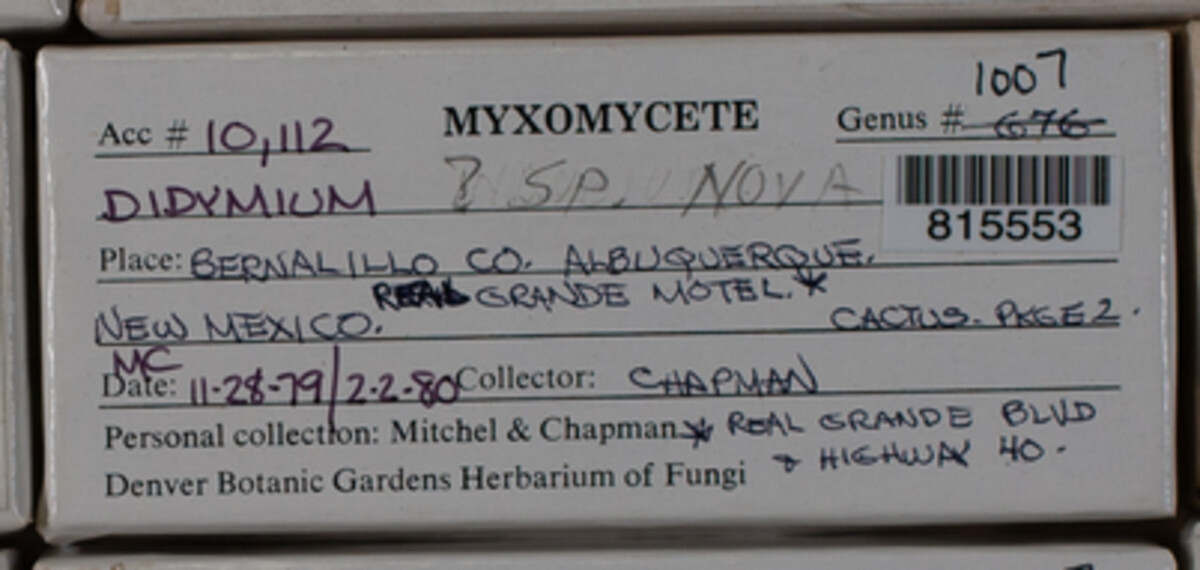 1007
Acc # 10,112 MYXOMYCETE Genus # 676
DIDYMIUM ? SP. NOVA
815553
Place: BERNALILLO CO. ALBUQUERQUE.
REAL GRANDE MOTEL.*
NEW MEXICO. CACTUS. PKGE 2.
MC
Date: 11-28-79/2-2-80 Collector: CHAPMAN
Personal collection: Mitchel & Chapman * REAL GRANDE BLVD
& HIGHWAY 40.
Denver Botanic Gardens Herbarium of Fungi